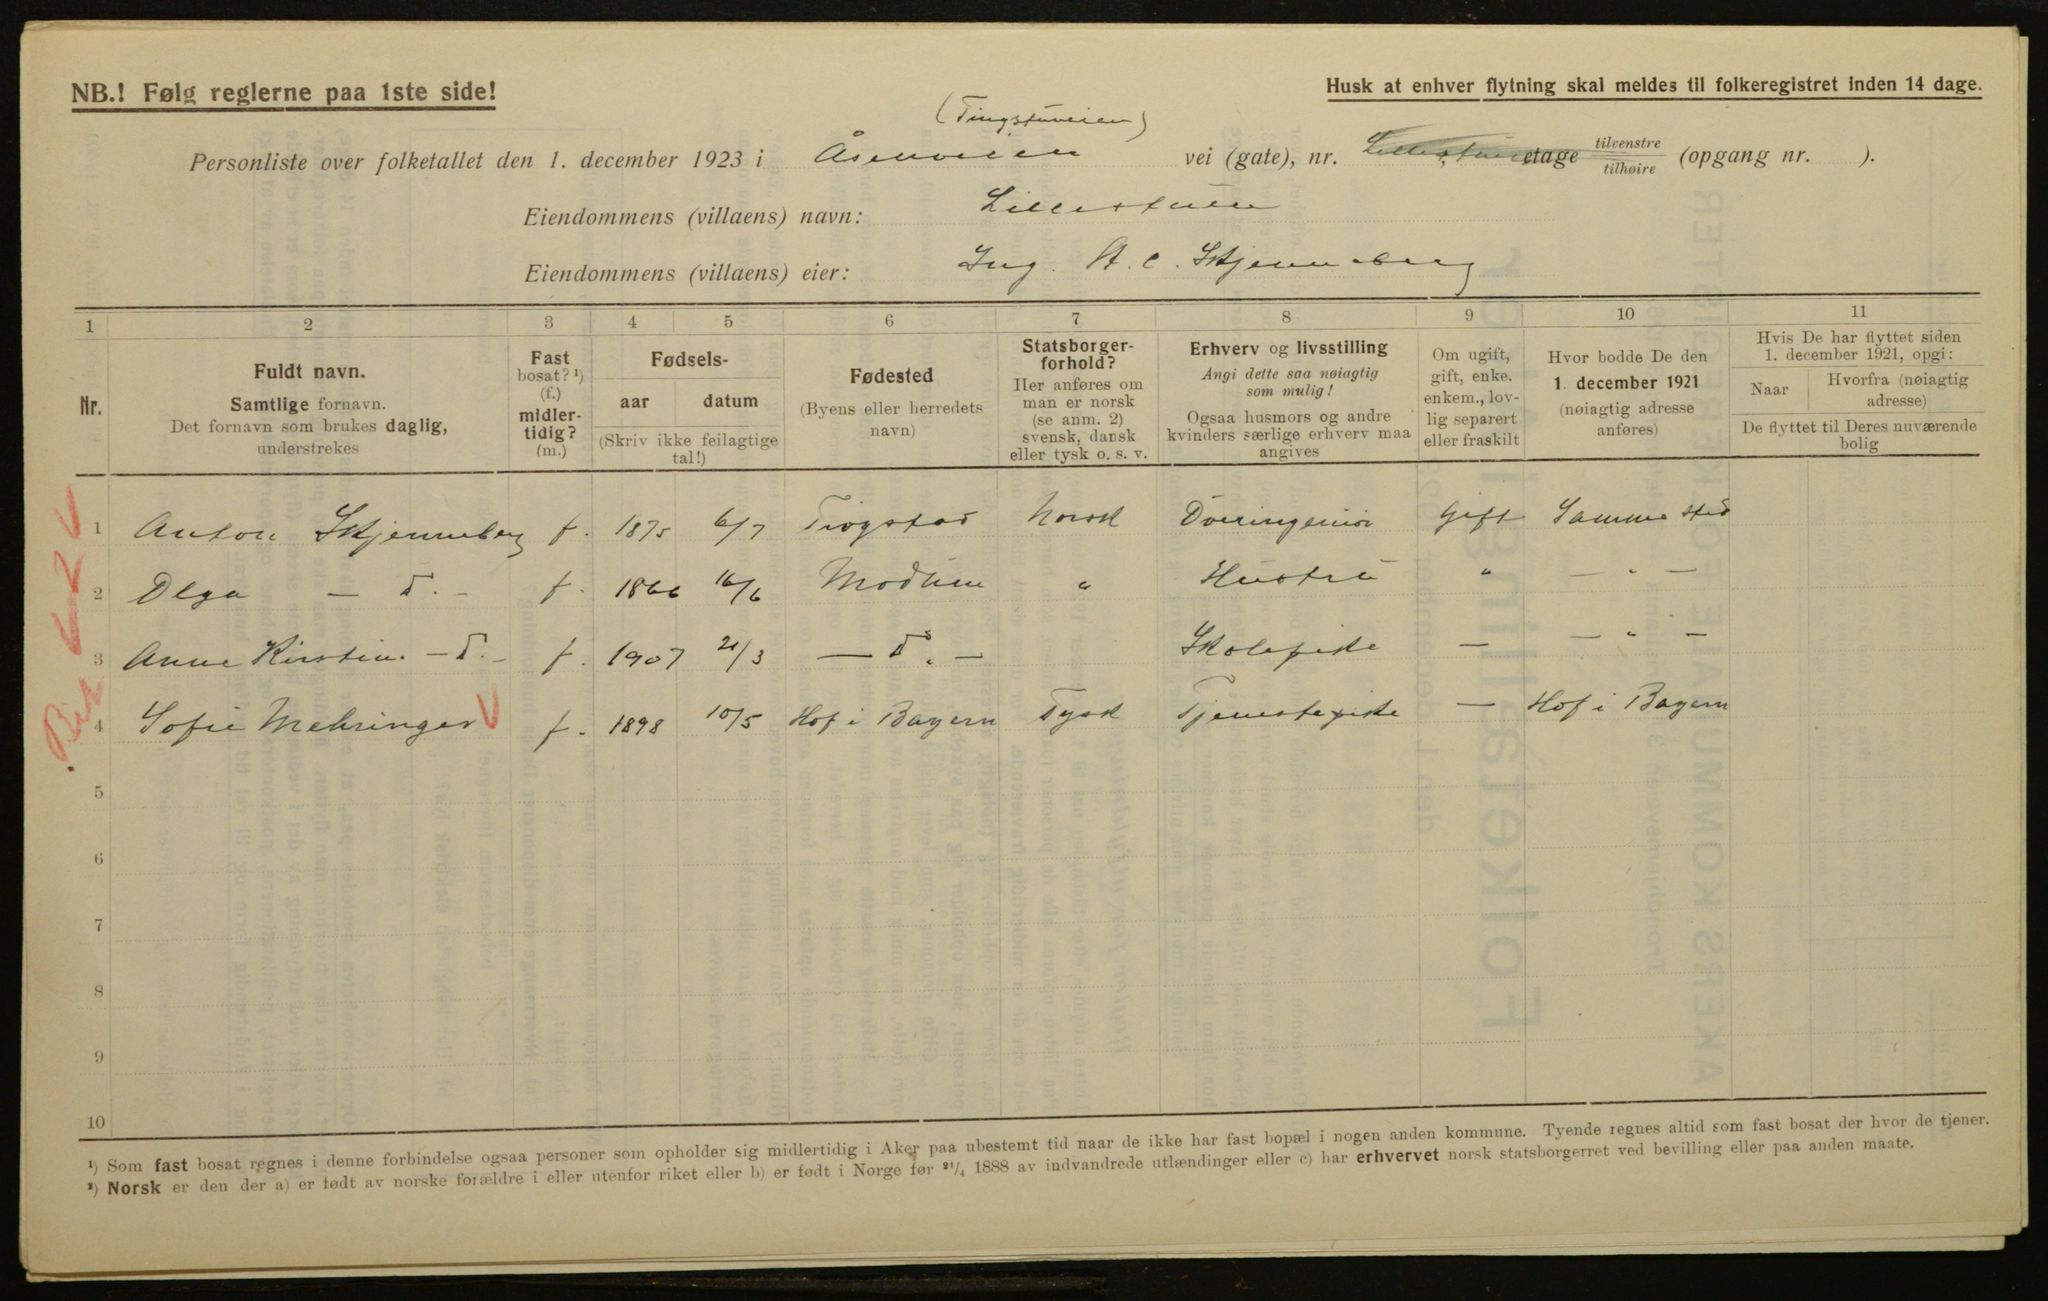 NB.! Følg reglerne paa 1ste side!
Husk at enhver flytning skal meldes til folkeregistret inden 14 dage.
(Tingstuveien)
Personliste over folketallet den 1. december 1923 i Åsenveien vei (gate), nr. Lillestuen etage tilvenstre/tilhøire (opgang nr. ).
Eiendommens (villaens) navn: Lillestuen
Eiendommens (villaens) eier: Ing. A. C. Skjenneberg
1 2 3 4 5 6 7 8 9 10 11
Nr.
Fuldt navn.
Samtlige fornavn.
Det fornavn som brukes daglig,
understrekes
Fast
bosat? ¹)
(f.)
midler-
tidig?
(m.)
Fødsels-
aar datum
(Skriv ikke feilagtige
tal!)
Fødested
(Byens eller herredets
navn)
Statsborger-
forhold?
Her anføres om
man er norsk
(se anm. 2)
svensk, dansk
eller tysk o. s. v.
Erhverv og livsstilling
Angi dette saa nøiagtig
som mulig!
Ogsaa husmors og andre
kvinders særlige erhverv maa
angives
Om ugift,
gift, enke.
enkem., lov-
lig separert
eller fraskilt
Hvor bodde De den
1. december 1921
(nøiagtig adresse
anføres)
Hvis De har flyttet siden
1. december 1921, opgi:
Naar Hvorfra (nøiagtig
adresse)
De flyttet til Deres nuværende
bolig
1 Anton Skjenneberg f. 1875 6/7 Trøgstad Norsk Overingeniør Gift Samme sted
2 Olga — d. — f. 1866 16/6 Modum " Hustru " — " —
3 Anne Kirstine — d. — f. 1907 21/3 — d. — Skolepike — — " —
4 Sofie Mehringer f. 1898 10/5 Hof i Bayern Tysk Tjenestepike — Hof i Bayern
5
6
7
8
9
10
¹) Som fast bosat regnes i denne forbindelse ogsaa personer som opholder sig midlertidig i Aker paa ubestemt tid naar de ikke har fast bopæl i nogen anden kommune. Tyende regnes altid som fast bosat der hvor de tjener.
²) Norsk er den der a) er født av norske forældre i eller utenfor riket eller b) er født i Norge før ²¹/₄ 1888 av indvandrede utlændinger eller c) har erhvervet norsk statsborgerret ved bevilling eller paa anden maate.